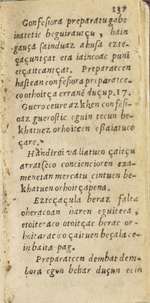 137
Confessora preparatu gabe
inatetic beguirauçu, hain
gauça sainduaz abusa ezte-
gaçunçat eta iaincoac puni
etçaitçançat. Preparatcen
hastean confessora preparatce-
co othoitça errana duçu p. 17.
Guero ceure azkhen confessi-
oaz gueroztic eguin tecun be-
khatuez orhoitcen essaiatuco
çare.
Handiroi valiatuco çaitçu
arratseco concienciaren exa-
menetan mercatu cintuen be-
khatuen orhoitçapena.
Ezteçaçula beraz falta
oheracoan haren eguitera,
etoiteraco otoitçac berac or-
hoitaraцico çaituen beçala ce-
inbaita pag.
Preparatcen dembar dem-
bora cgun behar duçun ecin